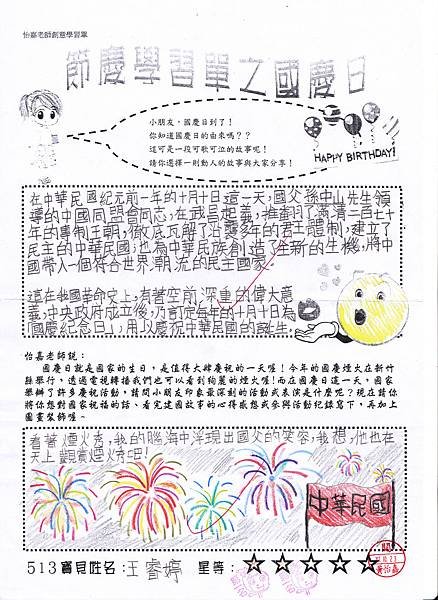 怡嘉老師創意學習單
節慶學習單之國慶日
小朋友，國慶日到了！
你知道國慶日的由來嗎？？
這可是一段可歌可泣的故事呢！
請你選擇一則動人的故事與大家分享！
HAPPY BIRTHDAY!
在中華民國紀元前一年的十月十日這一天，國父孫中山先生領
導的中國同盟會同志，在武昌起義，推翻了滿清二百七十
年的專制王朝，徹底瓦解了沿襲多年的君主體制，建立了
民主的中華民國；也為中華民族創造了全新的生機，將中
國帶入一個符合世界潮流的民主國家。
這在我國革命史上，有著空前、深重的偉大意
義，中央政府成立後，乃訂定每年的十月十日為
「國慶紀念日」，用以慶祝中華民國的誕生。
怡嘉老師說：
國慶日就是國家的生日，是值得大肆慶祝的一天喔！今年的國慶煙火在新竹
縣舉行，透過電視轉播我們也可以看到絢麗的煙火喔！而在國慶日這一天，國家
舉辦了許多慶祝活動，請問小朋友印象最深刻的活動或表演是什麼呢？現在請你
將你想對國家祝福的話、看完建國故事的心得感想或參與活動紀錄寫下，再加上
圖畫裝飾喔。
看著煙火秀，我的腦海中浮現出國父的笑容，我想，他也在
天上觀賞煙火吧！
中華民國
513寶貝姓名：王睿婷 星等：☆☆☆☆☆